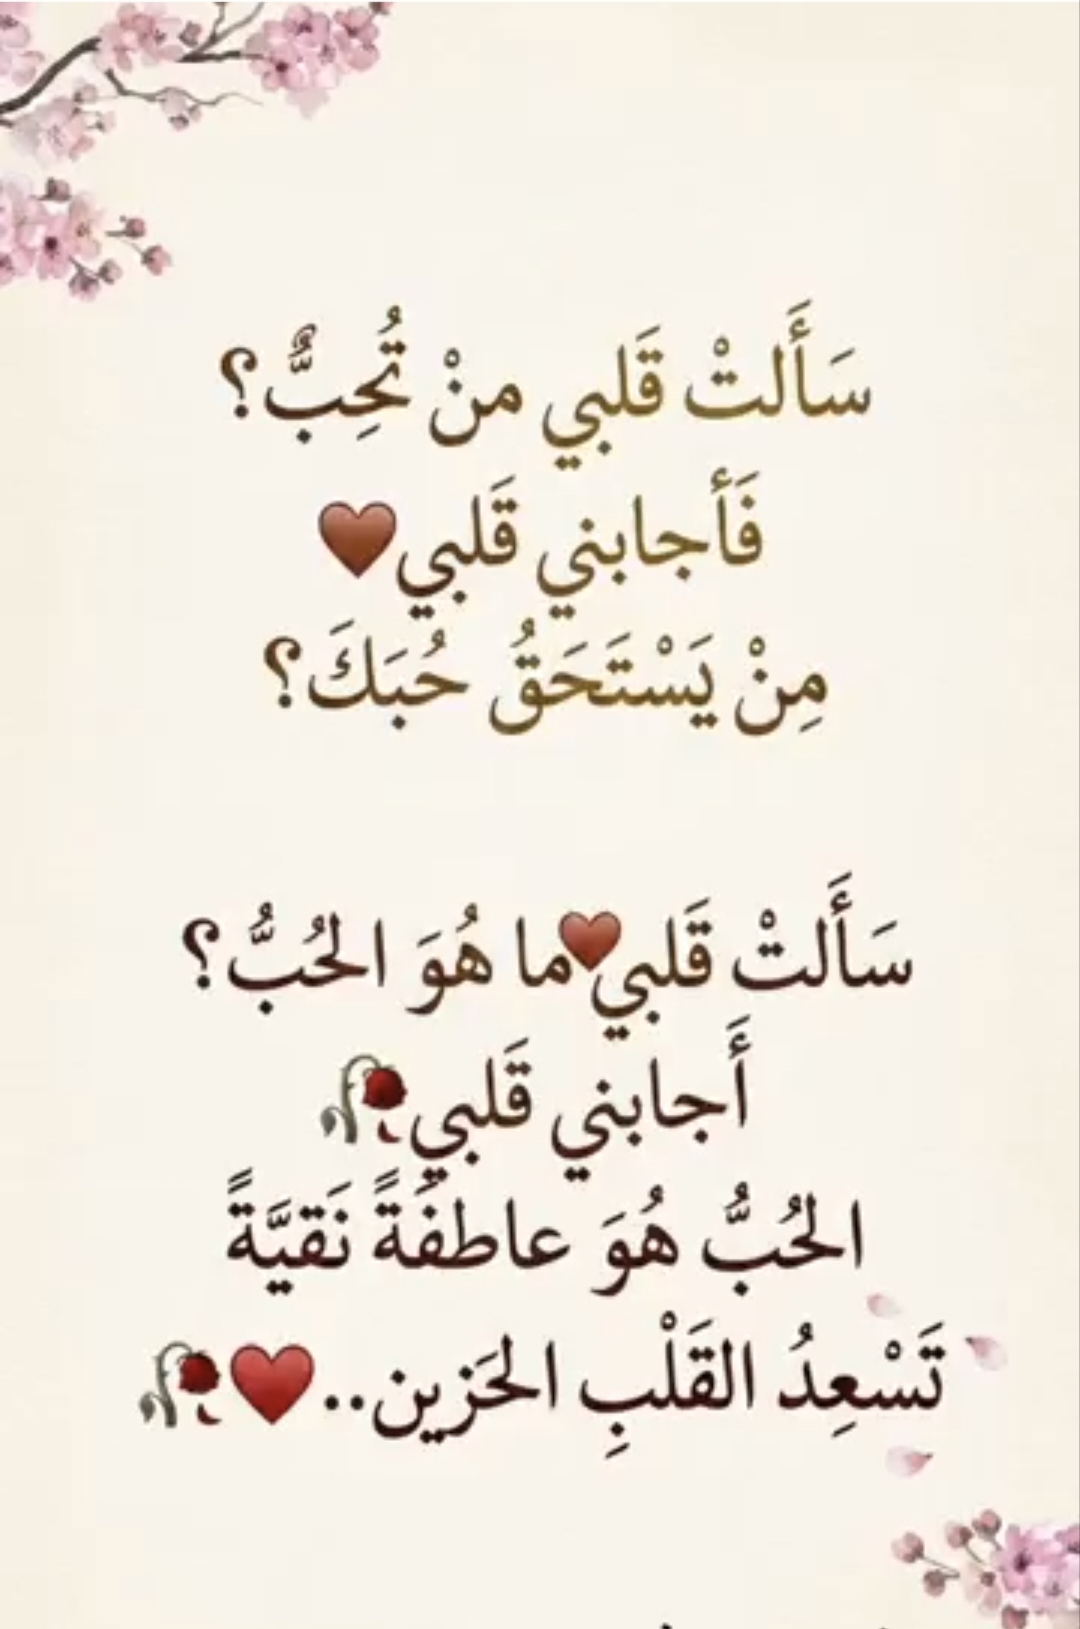 سَأَلتْ قَلبي منْ تُحِبٌّ؟
فَأَجابني قَلبي🤎
مِنْ يَسْتَحَقُ حُبَكَ؟
سَأَلتْ قَلبي❤️ما هُوَ الحُبُّ؟
أَجابني قَلبي🥀
الحُبُّ هُوَ عاطفَةً نَقيَّةً
تَسْعِدُ القَلْبِ الحَزين..❤️🥀